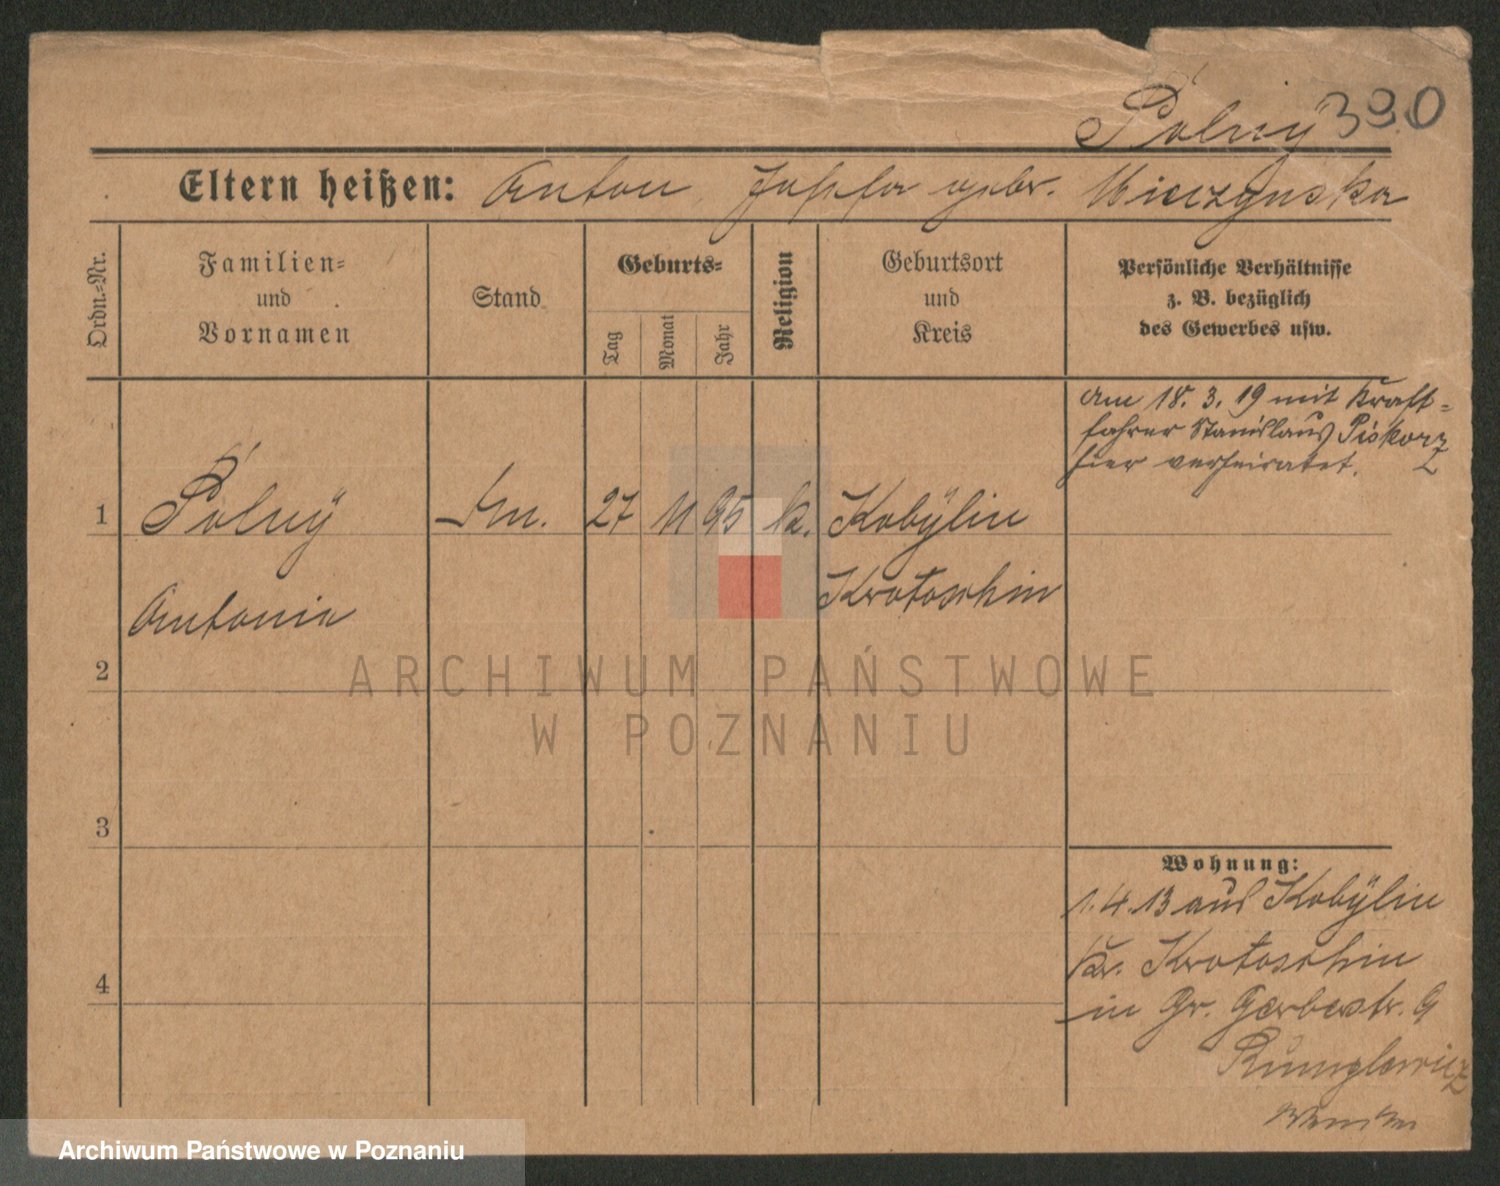 Pólnÿ 390
Eltern heißen: Anton Josefa gebr. Wieczynska
Ordn.=Nr.
Familien=
und
Vornamen
Stand
Geburts=
Tag
Monat
Jahr
Religion
Geburtsort
und
Kreis
Persönliche Verhältnisse
z. B. bezüglich
des Gewerbes usw.
am 18. 3. 19 mit Kraft=
fahrer Stanislaus Piskorz
hier verheiratet.
1 Pólnÿ 27 11 95 k. Kobÿlin
Antonie Krotoschin
2
3
4
Wohnung:
1.4.13 aus Kobÿlin
Kr. Krotoschin
in Gr. Gerberstr. 9
ARCHIWUM PAŃSTWOWE
W POZNANIU
Archiwum Państwowe w Poznaniu